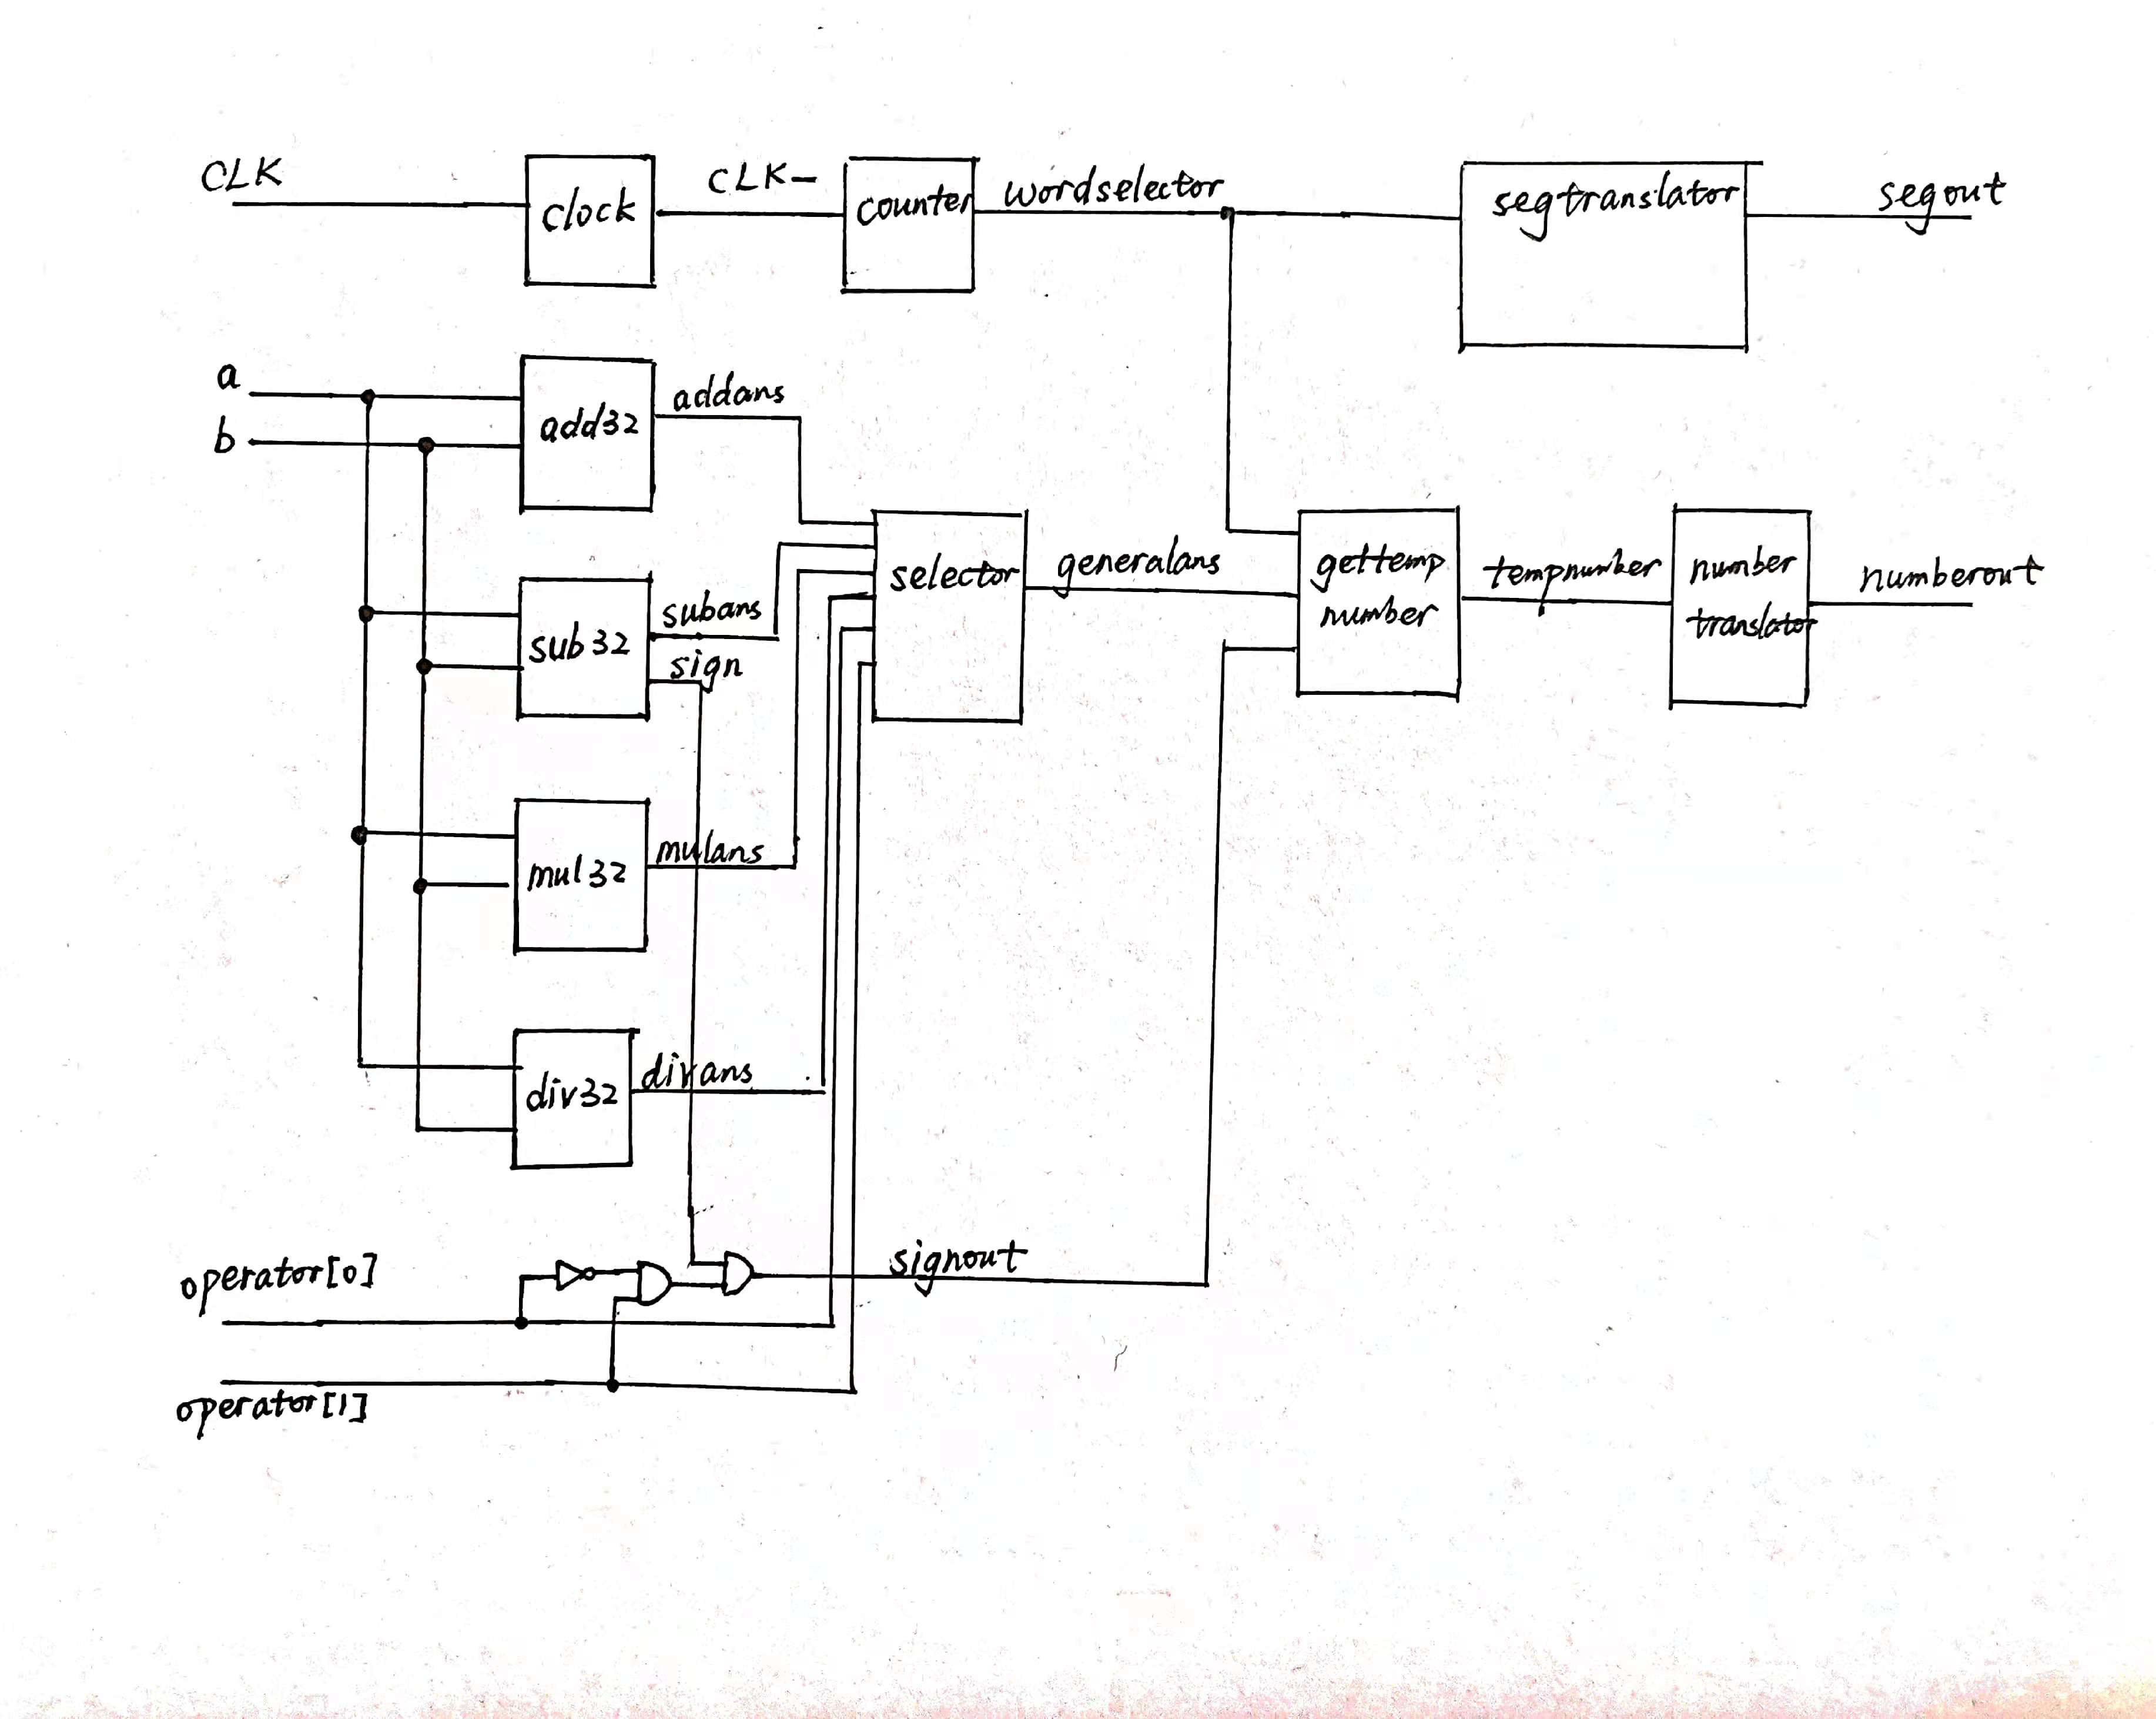 CLK
clock
CLK-
counter
wordselector
segtranslator
segout
a
b
add32
addans
sub32
subans
sign
selector
generalans
gettemp
number
tempnumber
number
translator
numberout
mul32
mulans
div32
divans
operator[0]
signout
operator[1]